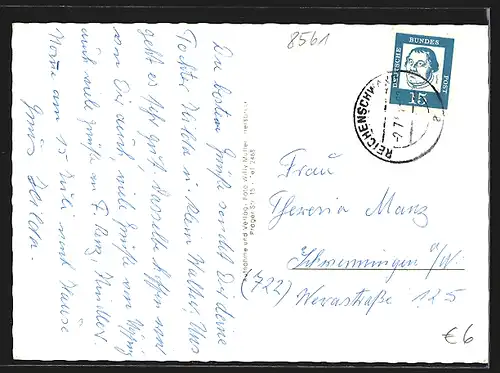 8561
DEUTSCHE BUNDES POST
15
REICHENSCHW
Die besten Grüße sendet Dir deine
Tochter Hilda u. klein Walter. Uns
geht es sehr gut, dasselbe hoffen wir
von Dir auch, viele Grüße von
und viele Grüße an F. Kinder
am 15 Juli nach Hause
Gruß Hilda.
und Verlag: Foto Willy Müller, Hersbruck
Prager St. 15 · Tel. 2468
Frau
Theresia Manz
Schwenningen a/N.
(722) Werastraße 125
€6